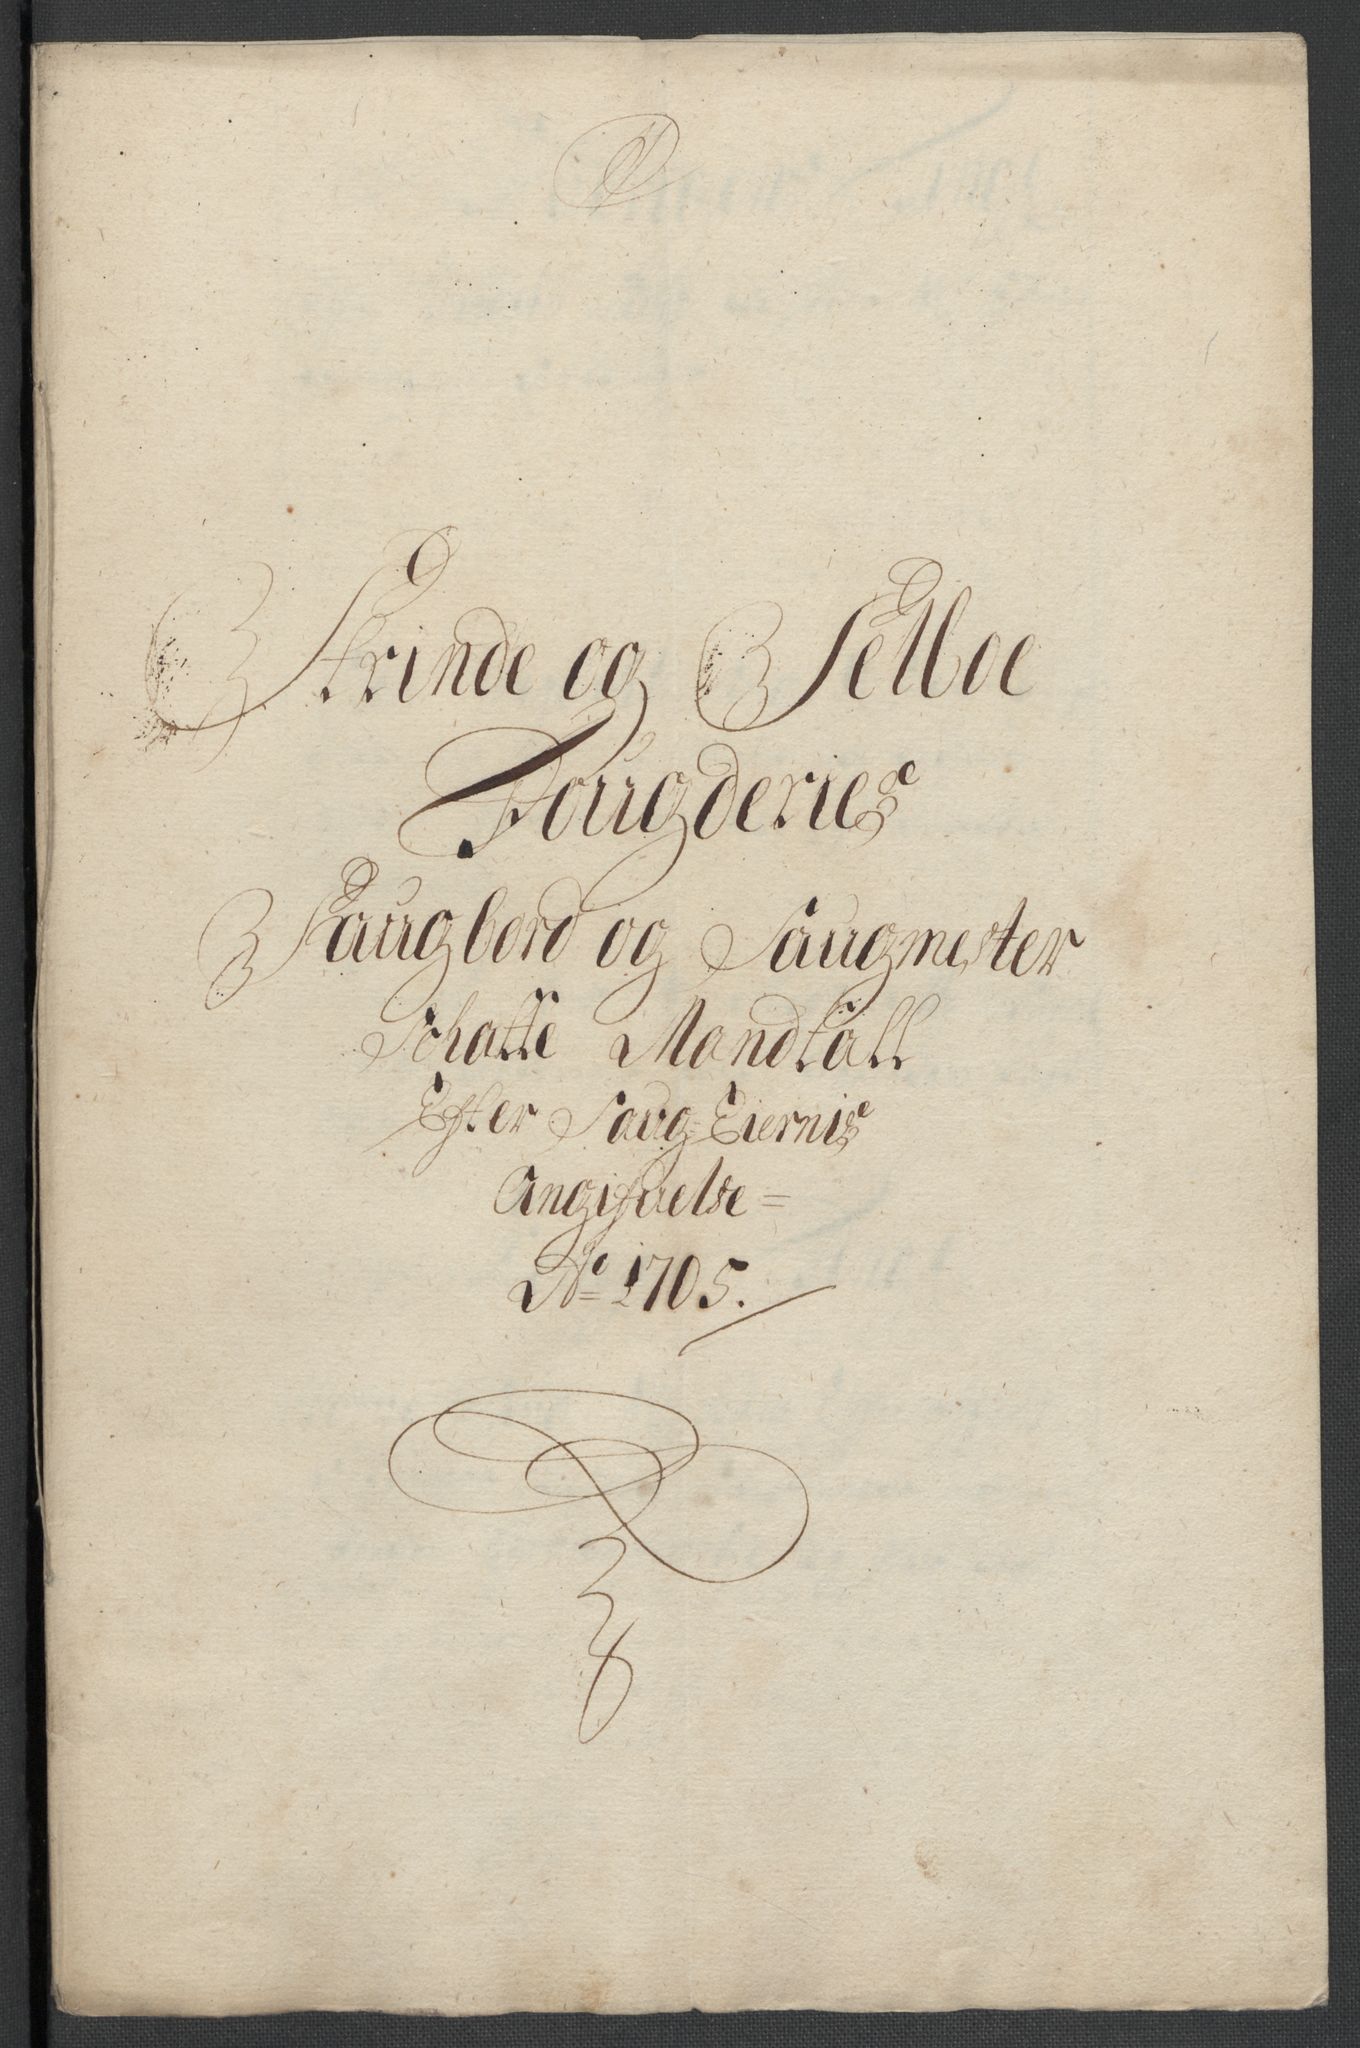 Strinde og Selboe
Fougderies
Saugbord og Saugmester
Schatte Mandtall
Efter Saug-Eiernis
Angifuelse =
Ao 1705.